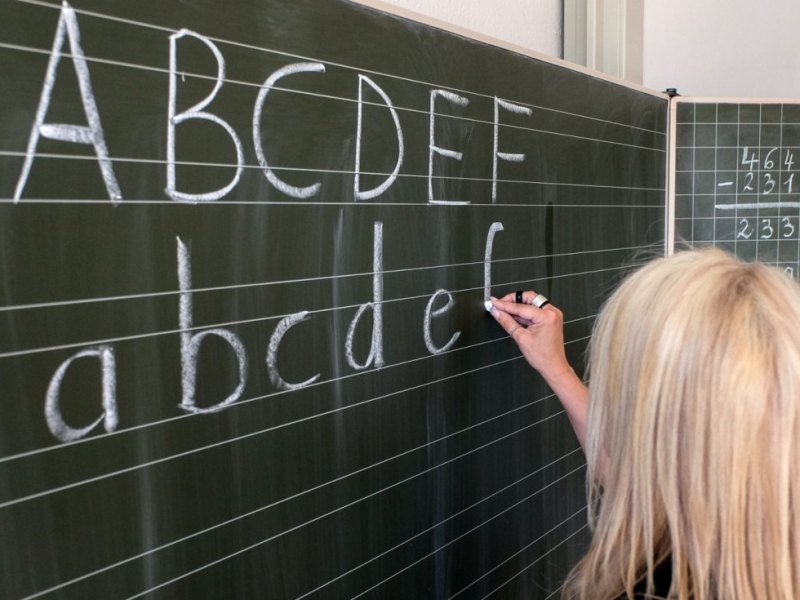 A B C D E F
a b c d e f
464
- 231
233